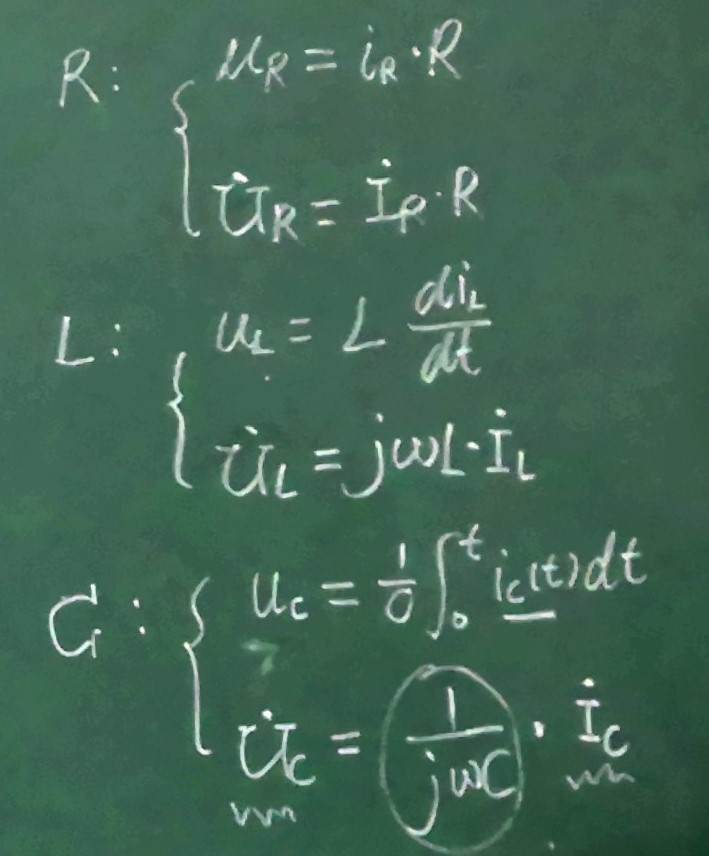 R: u_R = i_R · R
U̇_R = İ_R · R
L: u_L = L di_L/dt
U̇_L = jωL · İ_L
C: u_C = 1/C ∫_0^t i_C(t) dt
U̇_C = 1/(jωC) · İ_C